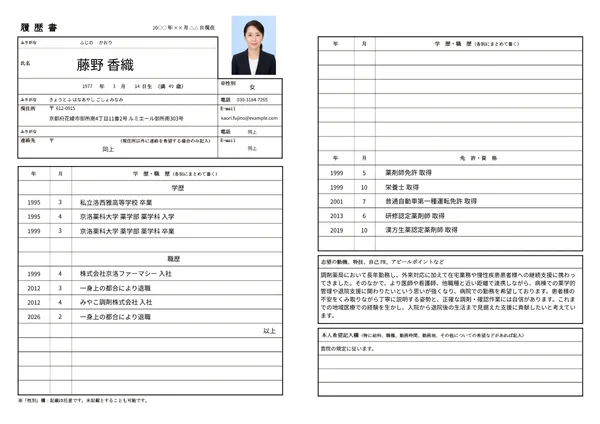 履歴書
20○○年××月△△日現在
ふりがな ふじの かおり
氏名 藤野 香織
1977 年 3 月 14 日生 (満 49 歳)
※性別 女
ふりがな きょうとふ はなあやし ごしょみなみ
電話 030-3184-7265
現住所 〒 612-0915
E-mail
京都府花綾市御所南4丁目11番2号 ルミエール御所南303号
kaori.fujino@example.com
ふりがな
電話 同上
連絡先 〒 (現住所以外に連絡を希望する場合のみ記入)
E-mail
同上
同上
年 月 学歴・職歴 (各別にまとめて書く)
学歴
1995 3 私立洛西雅高等学校 卒業
1995 4 京洛薬科大学 薬学部 薬学科 入学
1999 3 京洛薬科大学 薬学部 薬学科 卒業
職歴
1999 4 株式会社京洛ファーマシー 入社
2012 3 一身上の都合により退職
2012 4 みやこ調剤株式会社 入社
2026 2 一身上の都合により退職
以上
※「性別」欄:記載は任意です。未記載とすることも可能です。
年 月 学歴・職歴 (各別にまとめて書く)
年 月 免許・資格
1999 5 薬剤師免許 取得
1999 10 栄養士 取得
2001 7 普通自動車第一種運転免許 取得
2013 6 研修認定薬剤師 取得
2019 10 漢方生薬認定薬剤師 取得
志望の動機、特技、自己PR、アピールポイントなど
調剤薬局において長年勤務し、外来対応に加えて在宅業務や慢性疾患患者様への継続支援に携わっ
てきました。そのなかで、より医師や看護師、他職種と近い距離で連携しながら、病棟での薬学的
管理や退院支援に関わりたいという思いが強くなり、病院での勤務を希望しております。患者様の
不安をくみ取りながら丁寧に説明する姿勢と、正確な調剤・確認作業には自信があります。これま
での地域医療での経験を生かし、入院から退院後の生活まで見据えた支援に貢献したいと考えてい
ます。
本人希望記入欄 (特に給料、職種、勤務時間、勤務地、その他についての希望などがあれば記入)
貴院の規定に従います。